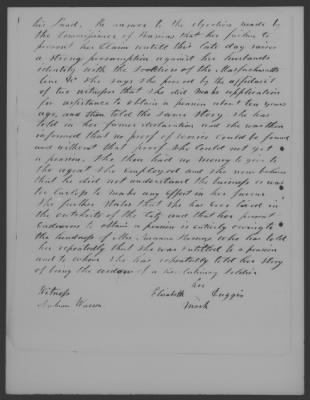 his Land. In answer to the objection made by
the Commissioner of Pensions that her failure to
present her Claim untill this late day raises
a strong presumption against her husbands
identity with the Soldier of the Massachusetts
line &c She says she proved by the affidavit
of two witnesses that she did make application
for assistance to obtain a pension about ten years
ago, and then told the same story she has
told in her former declaration and she was then
informed that no proof of service could be found
and without that proof she could not get
a pension. She then had no money to give to
the agent she employed and she now believes
that he did not understand the business or was
too careless to make any effort in her favour
She further states that she has ever lived in
the outskirts of the City and that her present
Endeavour to obtain a pension is entirely owing to
the kindness of Mrs Susanna Thomas who has told
her repeatedly that she was entitled to a pension
and to whom she has repeatedly told her story
of being the widow of a Revolutionary Soldier
her
Witness Elizabeth Suggis
Nahum Warren mark